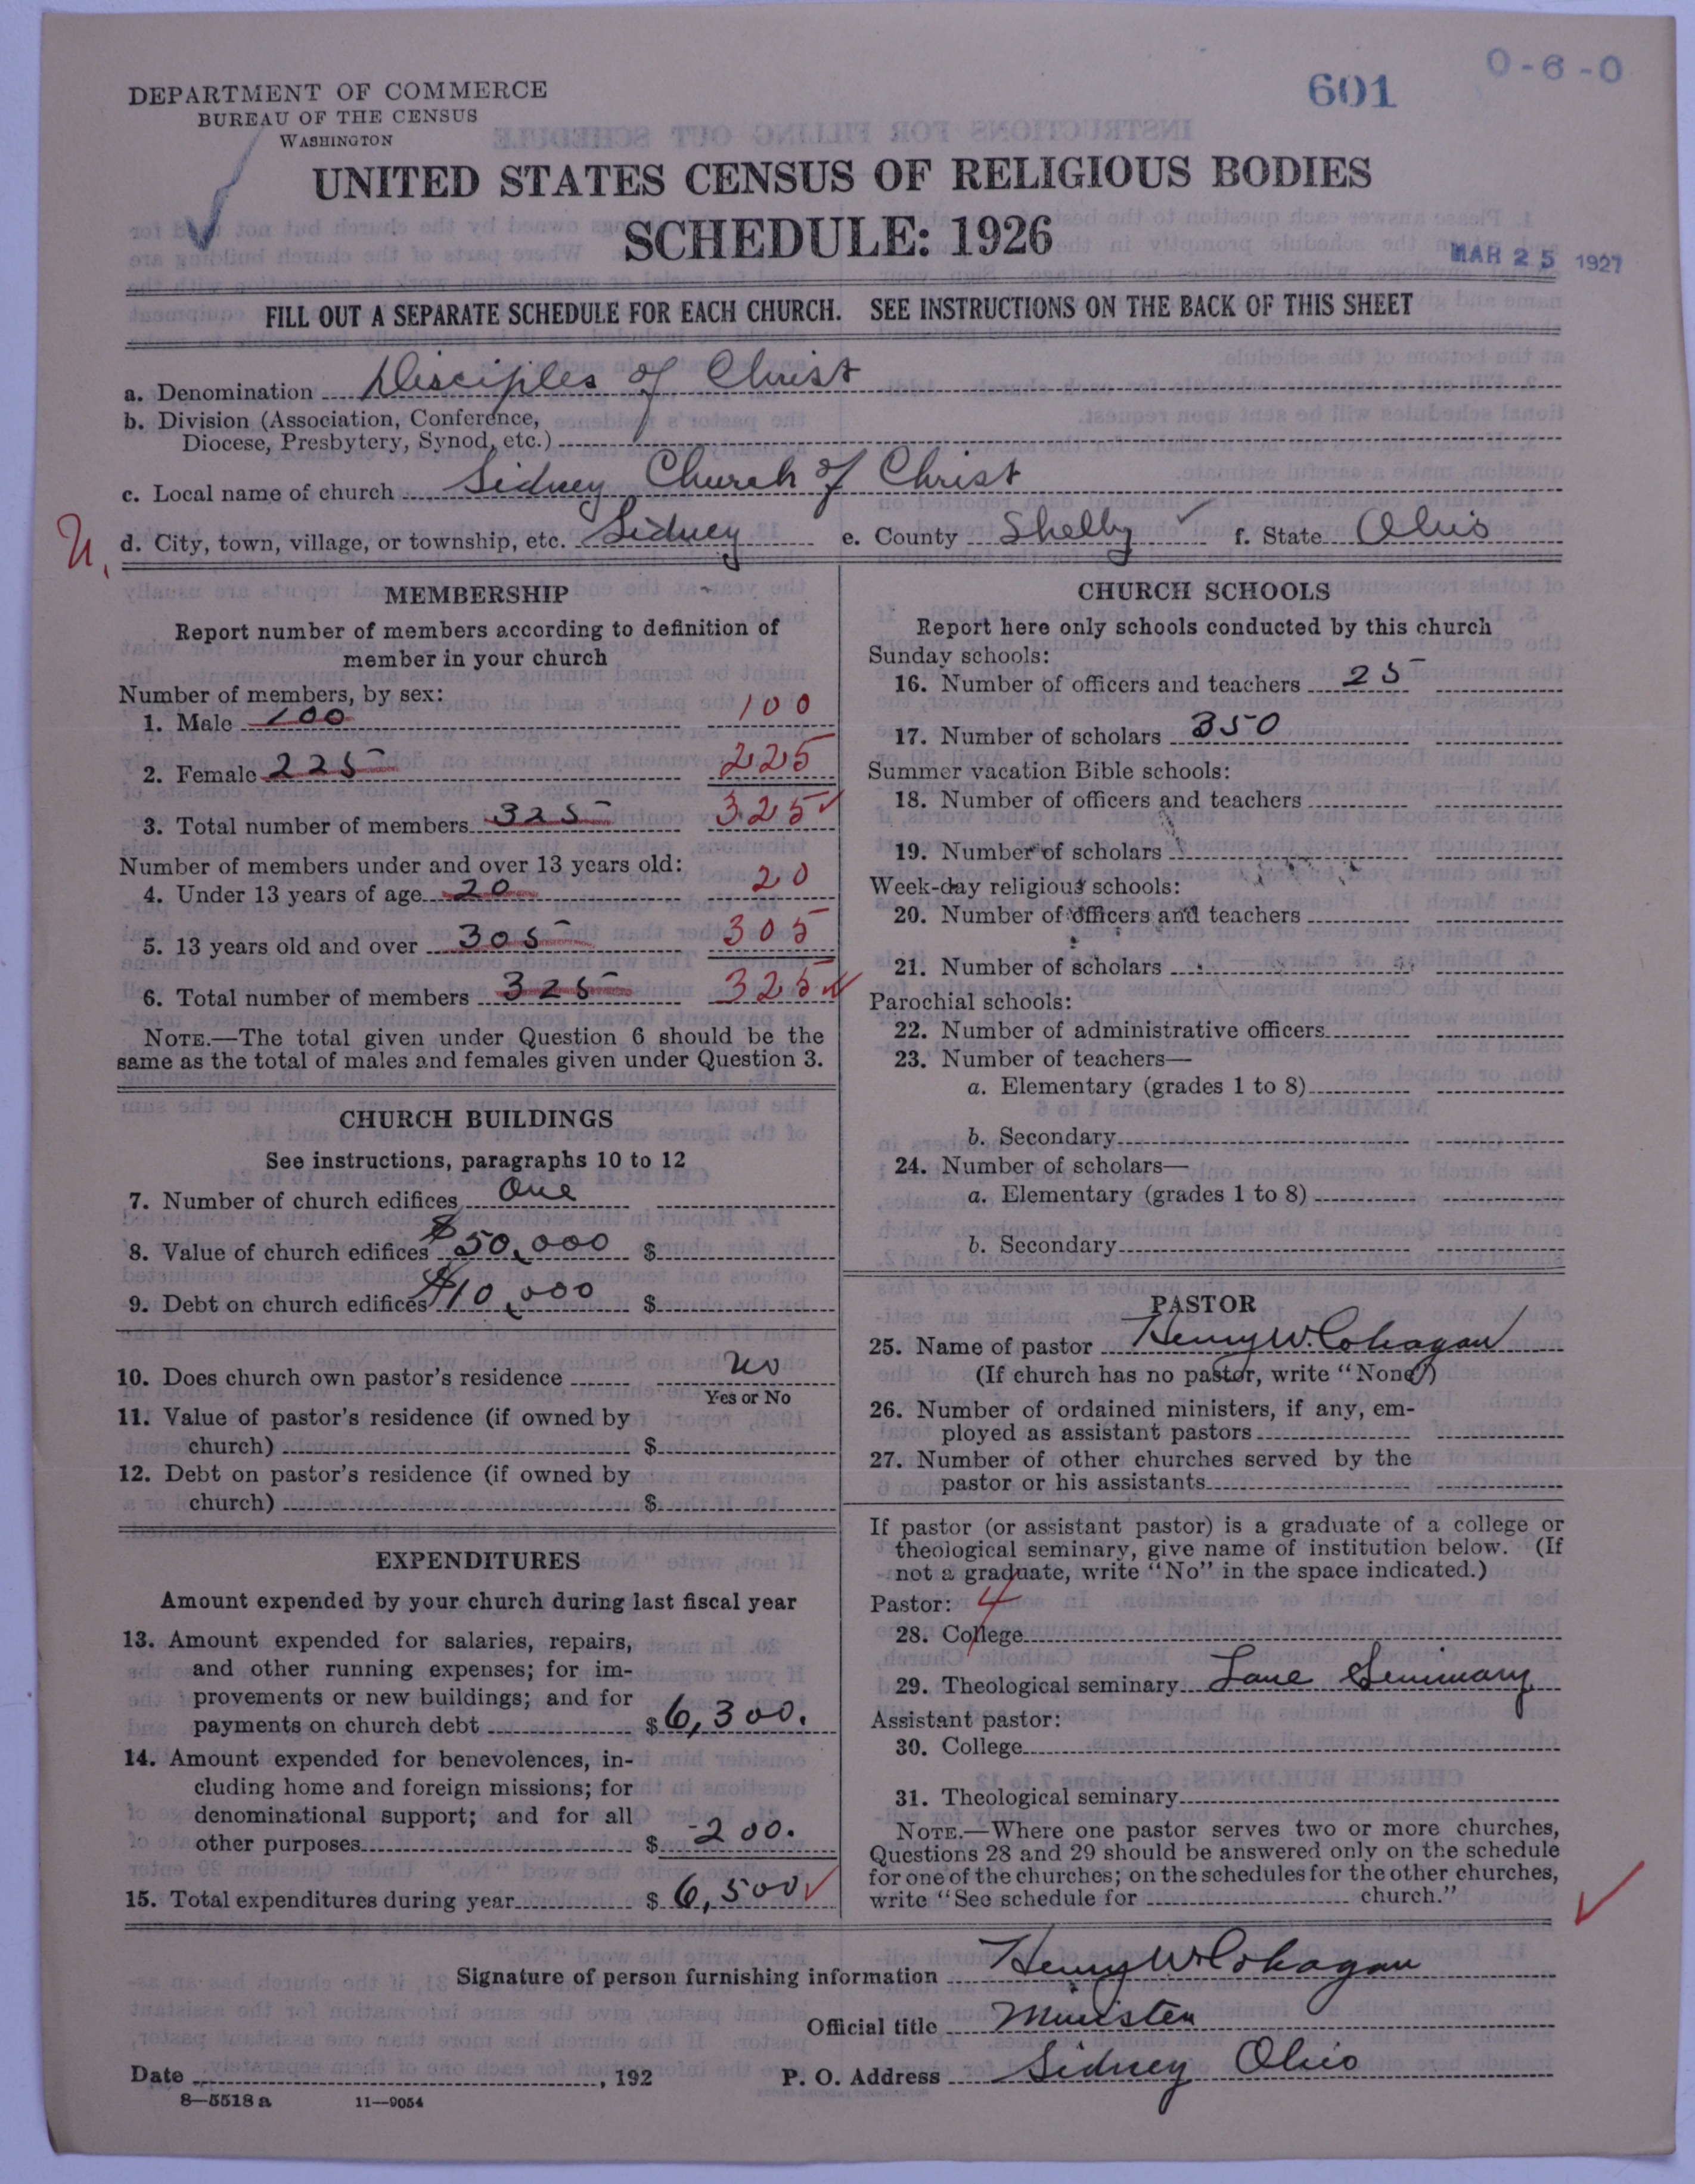 601
0-6-0
DEPARTMENT OF COMMERCE
BUREAU OF THE CENSUS
WASHINGTON
UNITED STATES CENSUS OF RELIGIOUS BODIES
SCHEDULE: 1926
MAR 25 1927
FILL OUT A SEPARATE SCHEDULE FOR EACH CHURCH. SEE INSTRUCTIONS ON THE BACK OF THIS SHEET
a. Denomination Disciples of Christ
b. Division (Association, Conference,
Diocese, Presbytery, Synod, etc.)
c. Local name of church Sidney Church of Christ
d. City, town, village, or township, etc. Sidney e. County Shelby ✓ f. State Ohio
MEMBERSHIP
Report number of members according to definition of
member in your church
Number of members, by sex:
1. Male 100 100
2. Female 225 225
3. Total number of members 325 325 ✓
Number of members under and over 13 years old:
4. Under 13 years of age 20 20
5. 13 years old and over 305 305
6. Total number of members 325 325 ✓
NOTE.—The total given under Question 6 should be the
same as the total of males and females given under Question 3.
CHURCH BUILDINGS
See instructions, paragraphs 10 to 12
7. Number of church edifices One
8. Value of church edifices $50,000 $
9. Debt on church edifices $10,000 $
10. Does church own pastor's residence no
Yes or No
11. Value of pastor's residence (if owned by
church) $
12. Debt on pastor's residence (if owned by
church) $
EXPENDITURES
Amount expended by your church during last fiscal year
13. Amount expended for salaries, repairs,
and other running expenses; for im-
provements or new buildings; and for
payments on church debt $ 6,300.
14. Amount expended for benevolences, in-
cluding home and foreign missions; for
denominational support; and for all
other purposes $ 200.
15. Total expenditures during year $ 6,500 ✓
CHURCH SCHOOLS
Report here only schools conducted by this church
Sunday schools:
16. Number of officers and teachers 25
17. Number of scholars 350
Summer vacation Bible schools:
18. Number of officers and teachers
19. Number of scholars
Week-day religious schools:
20. Number of officers and teachers
21. Number of scholars
Parochial schools:
22. Number of administrative officers
23. Number of teachers—
a. Elementary (grades 1 to 8)
b. Secondary
24. Number of scholars—
a. Elementary (grades 1 to 8)
b. Secondary
PASTOR
25. Name of pastor Henry W. Cohagan
(If church has no pastor, write "None")
26. Number of ordained ministers, if any, em-
ployed as assistant pastors
27. Number of other churches served by the
pastor or his assistants
If pastor (or assistant pastor) is a graduate of a college or
theological seminary, give name of institution below. (If
not a graduate, write "No" in the space indicated.)
Pastor: 4
28. College
29. Theological seminary Lane Seminary
Assistant pastor:
30. College
31. Theological seminary
NOTE.—Where one pastor serves two or more churches,
Questions 28 and 29 should be answered only on the schedule
for one of the churches; on the schedules for the other churches,
write "See schedule for church."
Signature of person furnishing information Henry W. Cohagan
Official title Minister
Date , 192 P. O. Address Sidney Ohio
8—5518 a 11—9054